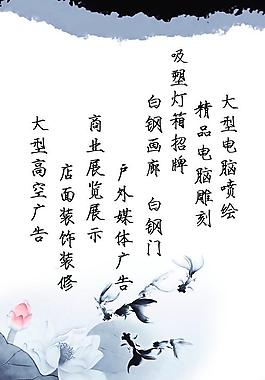 大型电脑喷绘
精品电脑雕刻
吸塑灯箱招牌
白钢画廊 白钢门
户外媒体广告
商业展览展示
店面装饰装修
大型高空广告